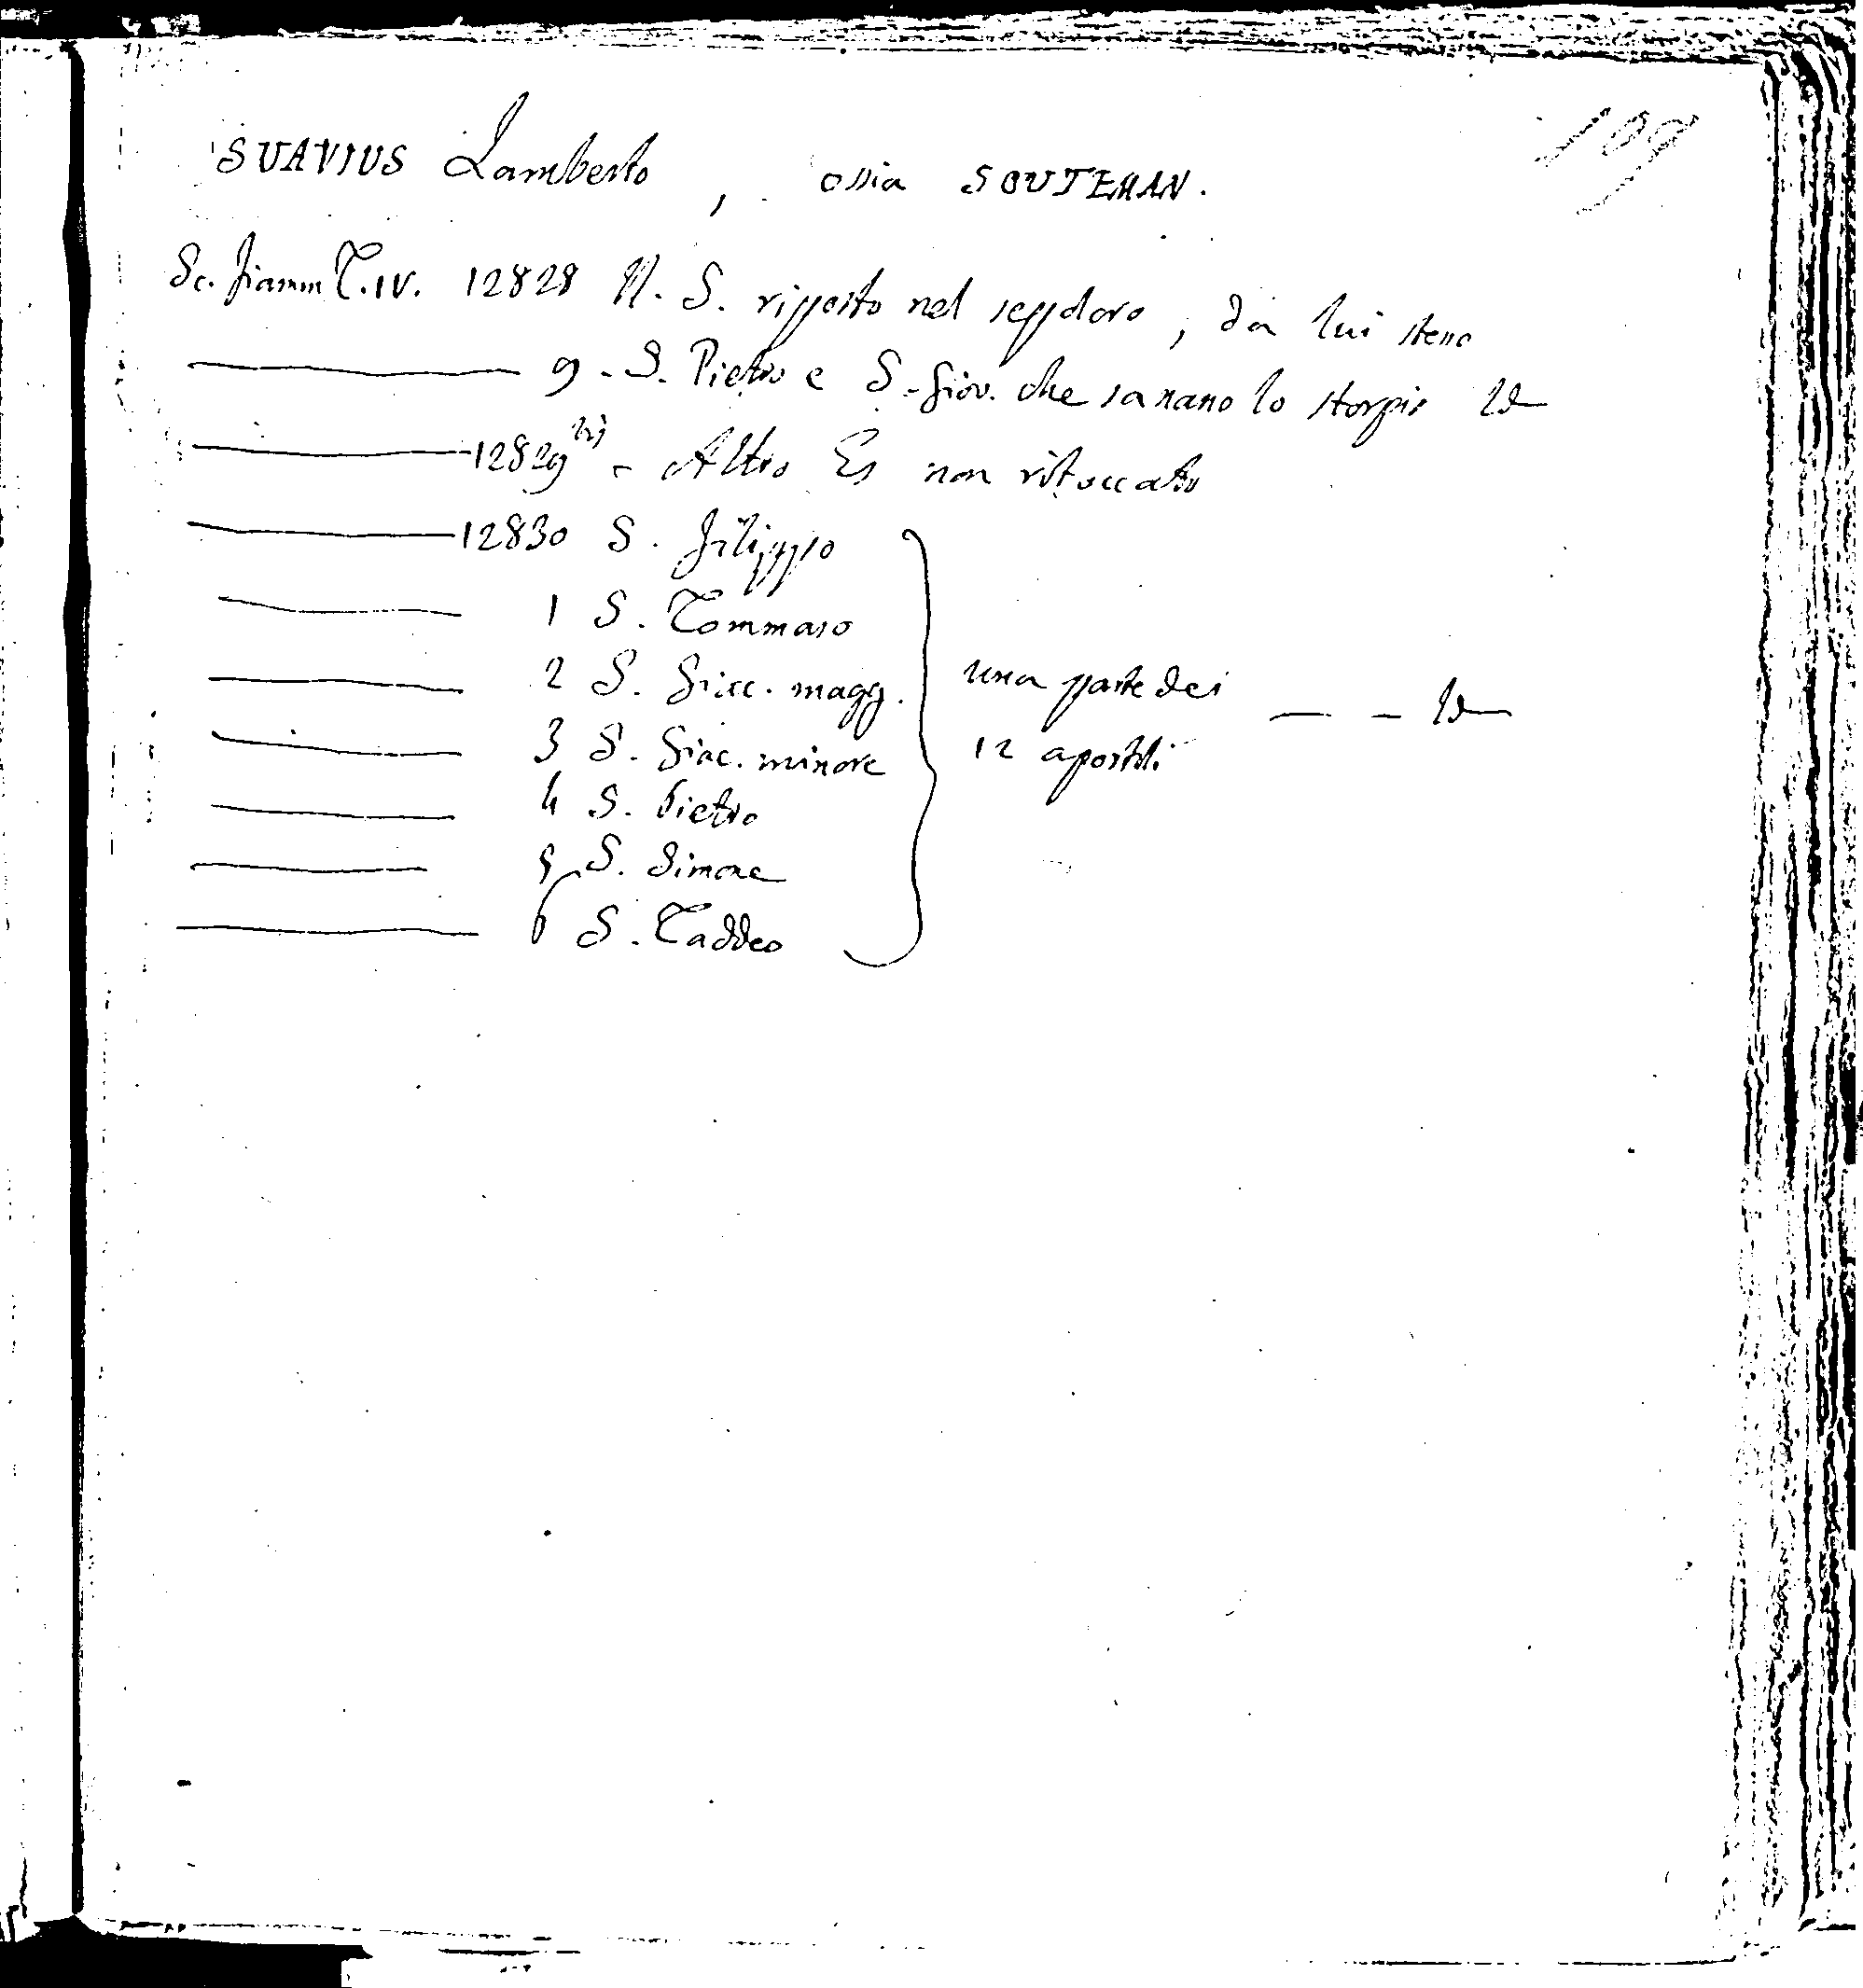 109
SUAVIUS Lamberto, ossia SOUTEMAN.
Sc. fiamm T. IV. 12828 N. S. riposto nel sepolcro, da lui stesso
9 - S. Pietro e S. Giov. che sanano lo storpio Id
12829 bis - Altro Es non ritoccato
12830 S. Filippo
1 S. Tommaso
2 S. Giac. magg.
3 S. Giac. minore
4 S. Pietro
5 S. Simone
6 S. Taddeo
una parte dei
12 apostoli — - Id